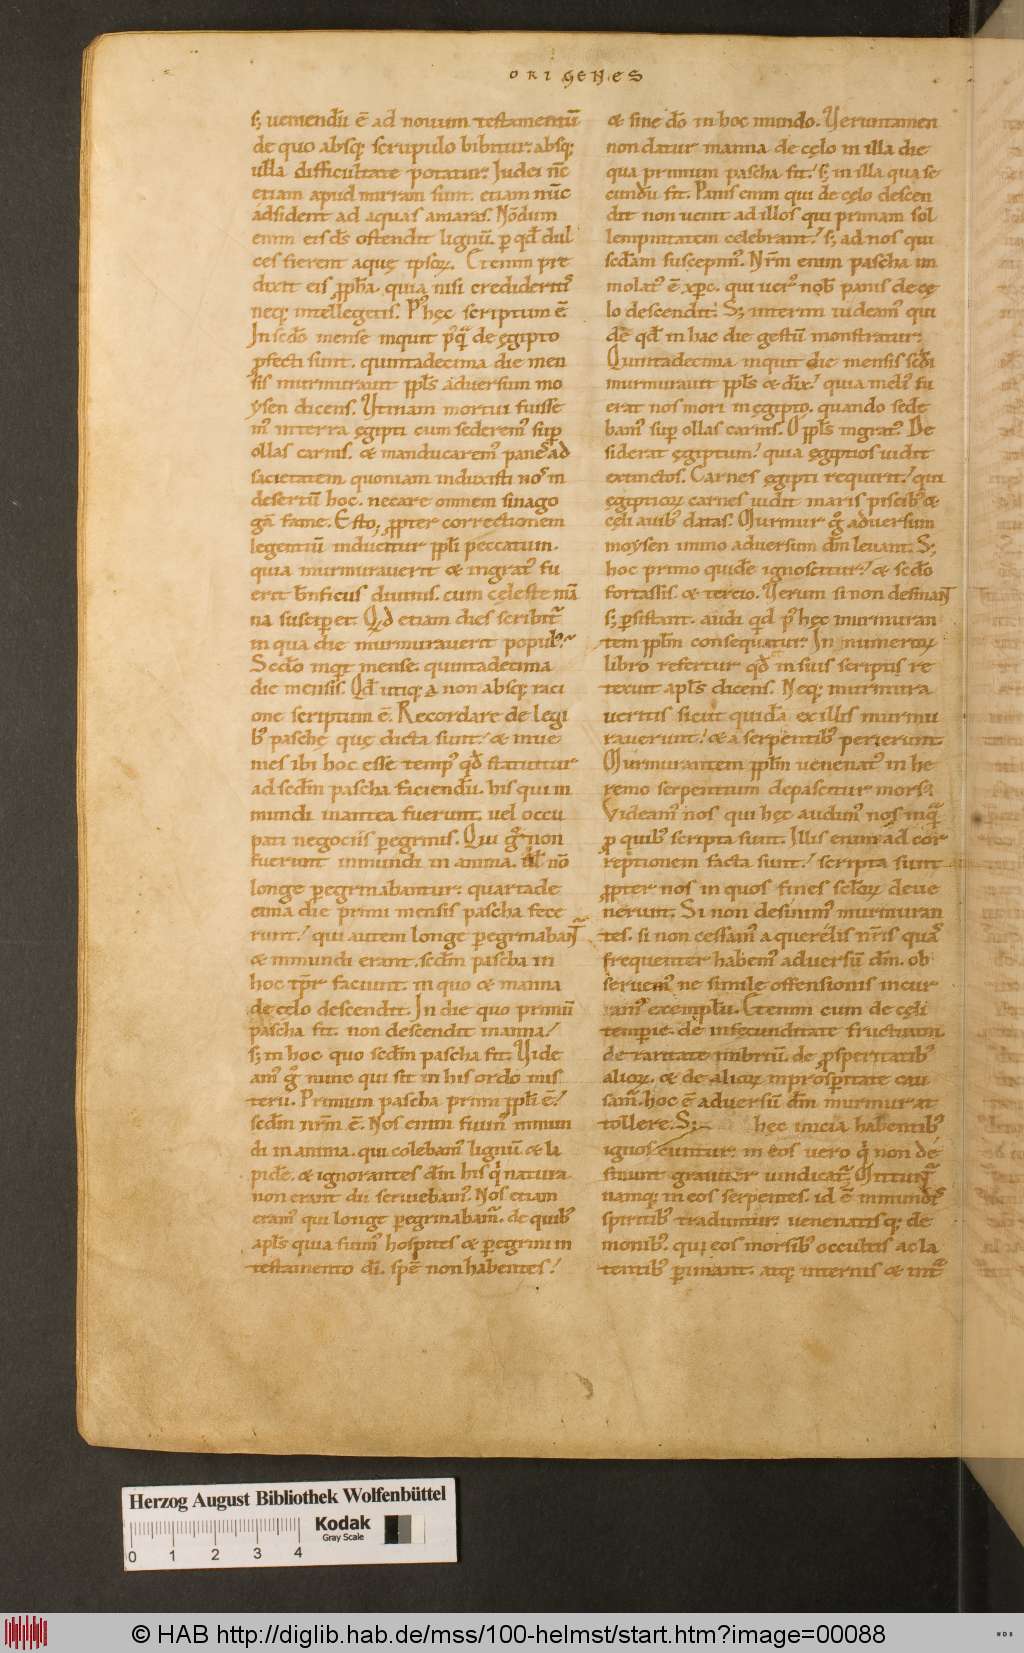 ORIGENES
s; ueniendū ē ad nouum testamentū
de quo absq; scrupulo bibitur. absq;
ulla difficultate potatur. Iudei nc̄
etiam apud mirram sunt. etiam nūc
adsident ad aquas amaras. Nōdum
enim eis ds̄ ostendit lignū. p qđ dul
ces fierent aquę ipsoꝝ. Etenim pre
dixit eis ppha. quia nisi credideritis
neq; intellegetis. Pꝰ hęc scriptum ē
In scđo mense inquit pꝰquā de ęgipto
pfecti sunt. quintadecima die men
sis murmurauit ppls̄ aduersum mo
ysen dicens. Utinam mortui fuisse
mꝰ in terra ęgipti cum sederemꝰ sup
ollas carnis. & manducaremꝰ panes ad
sacietatem quoniam induxisti nos in
desertū hoc. necare omnem sinago
gā fame. Esto; ppter correctionem
legentiū inducitur ppli peccatum.
quia murmurauerit & ingratꝰ fu
erit bn̄ficus diuinis. cum cęleste mā
na susciperet. Qđ etiam dies scribitr̄
in qua die murmurauerit populꝰ.
Scđo inqt mense. quintadecima
die mensis. Qđ utiq; a non absq; raci
one scriptum ē. Recordare de legi
bꝰ paschę quę dicta sunt. & inue
nies ibi hoc esse tempꝰ qđ statuitur
ad scđm pascha faciendū. his qui in
mundi in antea fuerunt. uel occu
pati negociis peregrinis. Qui gͦ non
fuerunt inmundi in anima. ul̄ nō
longe peregrinabantur. quartade
cima die primi mensis pascha fece
runt. qui autem longe peregrinabant̄
& inmundi erant. scđm pascha in
hoc tp̄r faciunt. in quo & manna
de cęlo descendit. In die quo primū
pascha fit. non descendit manna.
s; in hoc quo scđm pascha fit. Uide
amꝰ gͦ nunc qui sit in his ordo mis
terii. Primum pascha primi ppli ē.
scđm nr̄m ē. Nos enim fuimꝰ inmun
di in anima. qui colebamꝰ lignū & la
pidē. & ignorantes dm̄ his q̇ natura
non erant dii seruiebamꝰ. Nos etiam
eramꝰ qui longe peregrinabamꝰ. de quibꝰ
apls̄ quia fuimꝰ hospites & peregrini in
testamento di. spē non habentes.
& sine dō in hoc mundo. Ueruntamen
non datur manna de cęlo in illa die
qua primum pascha fit. s; in illa qua se
cundū fit. Panis enim qui de cęlo descen
dit non uenit ad illos qui primam sol
lempnitatem celebrant. s; ad nos qui
scđam suscepimꝰ. Nr̄m enim pascha im
molatꝰ ē xp̄c. qui uerꝰ nob̄ panis de cę
lo descendit. S; interim uideamꝰ qui
dē qđ in hac die gestū monstratur.
Quintadecima inquit die mensis scđi
murmurauit ppls̄ & dix̄. quia meliꝰ fu
erat nos mori in ęgipto. quando sede
bamꝰ sup ollas carnis. O ppls̄ ingratꝰ. De
siderat ęgiptum. quia ęgiptios uidit
extinctos. Carnes ęgipti requirit. qui
ęgiptioꝝ carnes uidit maris piscibꝰ &
cęli auibꝰ datas. Murmur gͦ aduersum
moysen immo aduersum dm̄ leuant. S;
hoc primo quidē ignoscitur. & scđo
fortassis. & tercio. Uerum si non desinant
s; psistant. audi quid pꝰ hęc murmuran
tem pplm̄ consequatur. In numeroꝝ
libro refertur qđ in suis scriptis re
texuit apls̄ dicens. Neq; murmura
ueritis sicut quidā ex illis murmu
rauerunt. & a serpentibꝰ perierunt.
Murmurantem pplm̄ uenenatꝰ in he
remo serpentium depascitur morsꝰ.
Uideamꝰ nos qui hęc audimꝰ nos inquā
p quibꝰ scripta sunt. Illis enim ad cor
reptionem facta sunt. scripta sunt
ppter nos in quos fines scl̄oꝝ deue
nerunt. Si non desinimꝰ murmuran
tes. si non cessamꝰ a querelis nr̄is quas
frequenter habemꝰ aduersū dm̄. ob
seruemꝰ ne simile offensionis incur
ramꝰ exemplū. Etenim cum de cęli
temperie. de infecunditate fructuum
de raritate imbriū. de psperitatibꝰ
alioꝝ. & de alioꝝ inprosperitate cau
samꝰ. hoc ē aduersū dm̄ murmurat
tollere. S; hęc inicia habentibꝰ
ignoscuntur. in eos uero q̇ non de
sinunt grauiter uindicatr̄. Mittunt̄
namq; in eos serpentes. id ē inmundis
spiritibꝰ traduntur. uenenatisq; de
monibꝰ. qui eos morsibꝰ occultis ac la
tentibꝰ perimant. atq; internis & int̄
Herzog August Bibliothek Wolfenbüttel
Kodak
Gray Scale
0 1 2 3 4
© HAB http://diglib.hab.de/mss/100-helmst/start.htm?image=00088